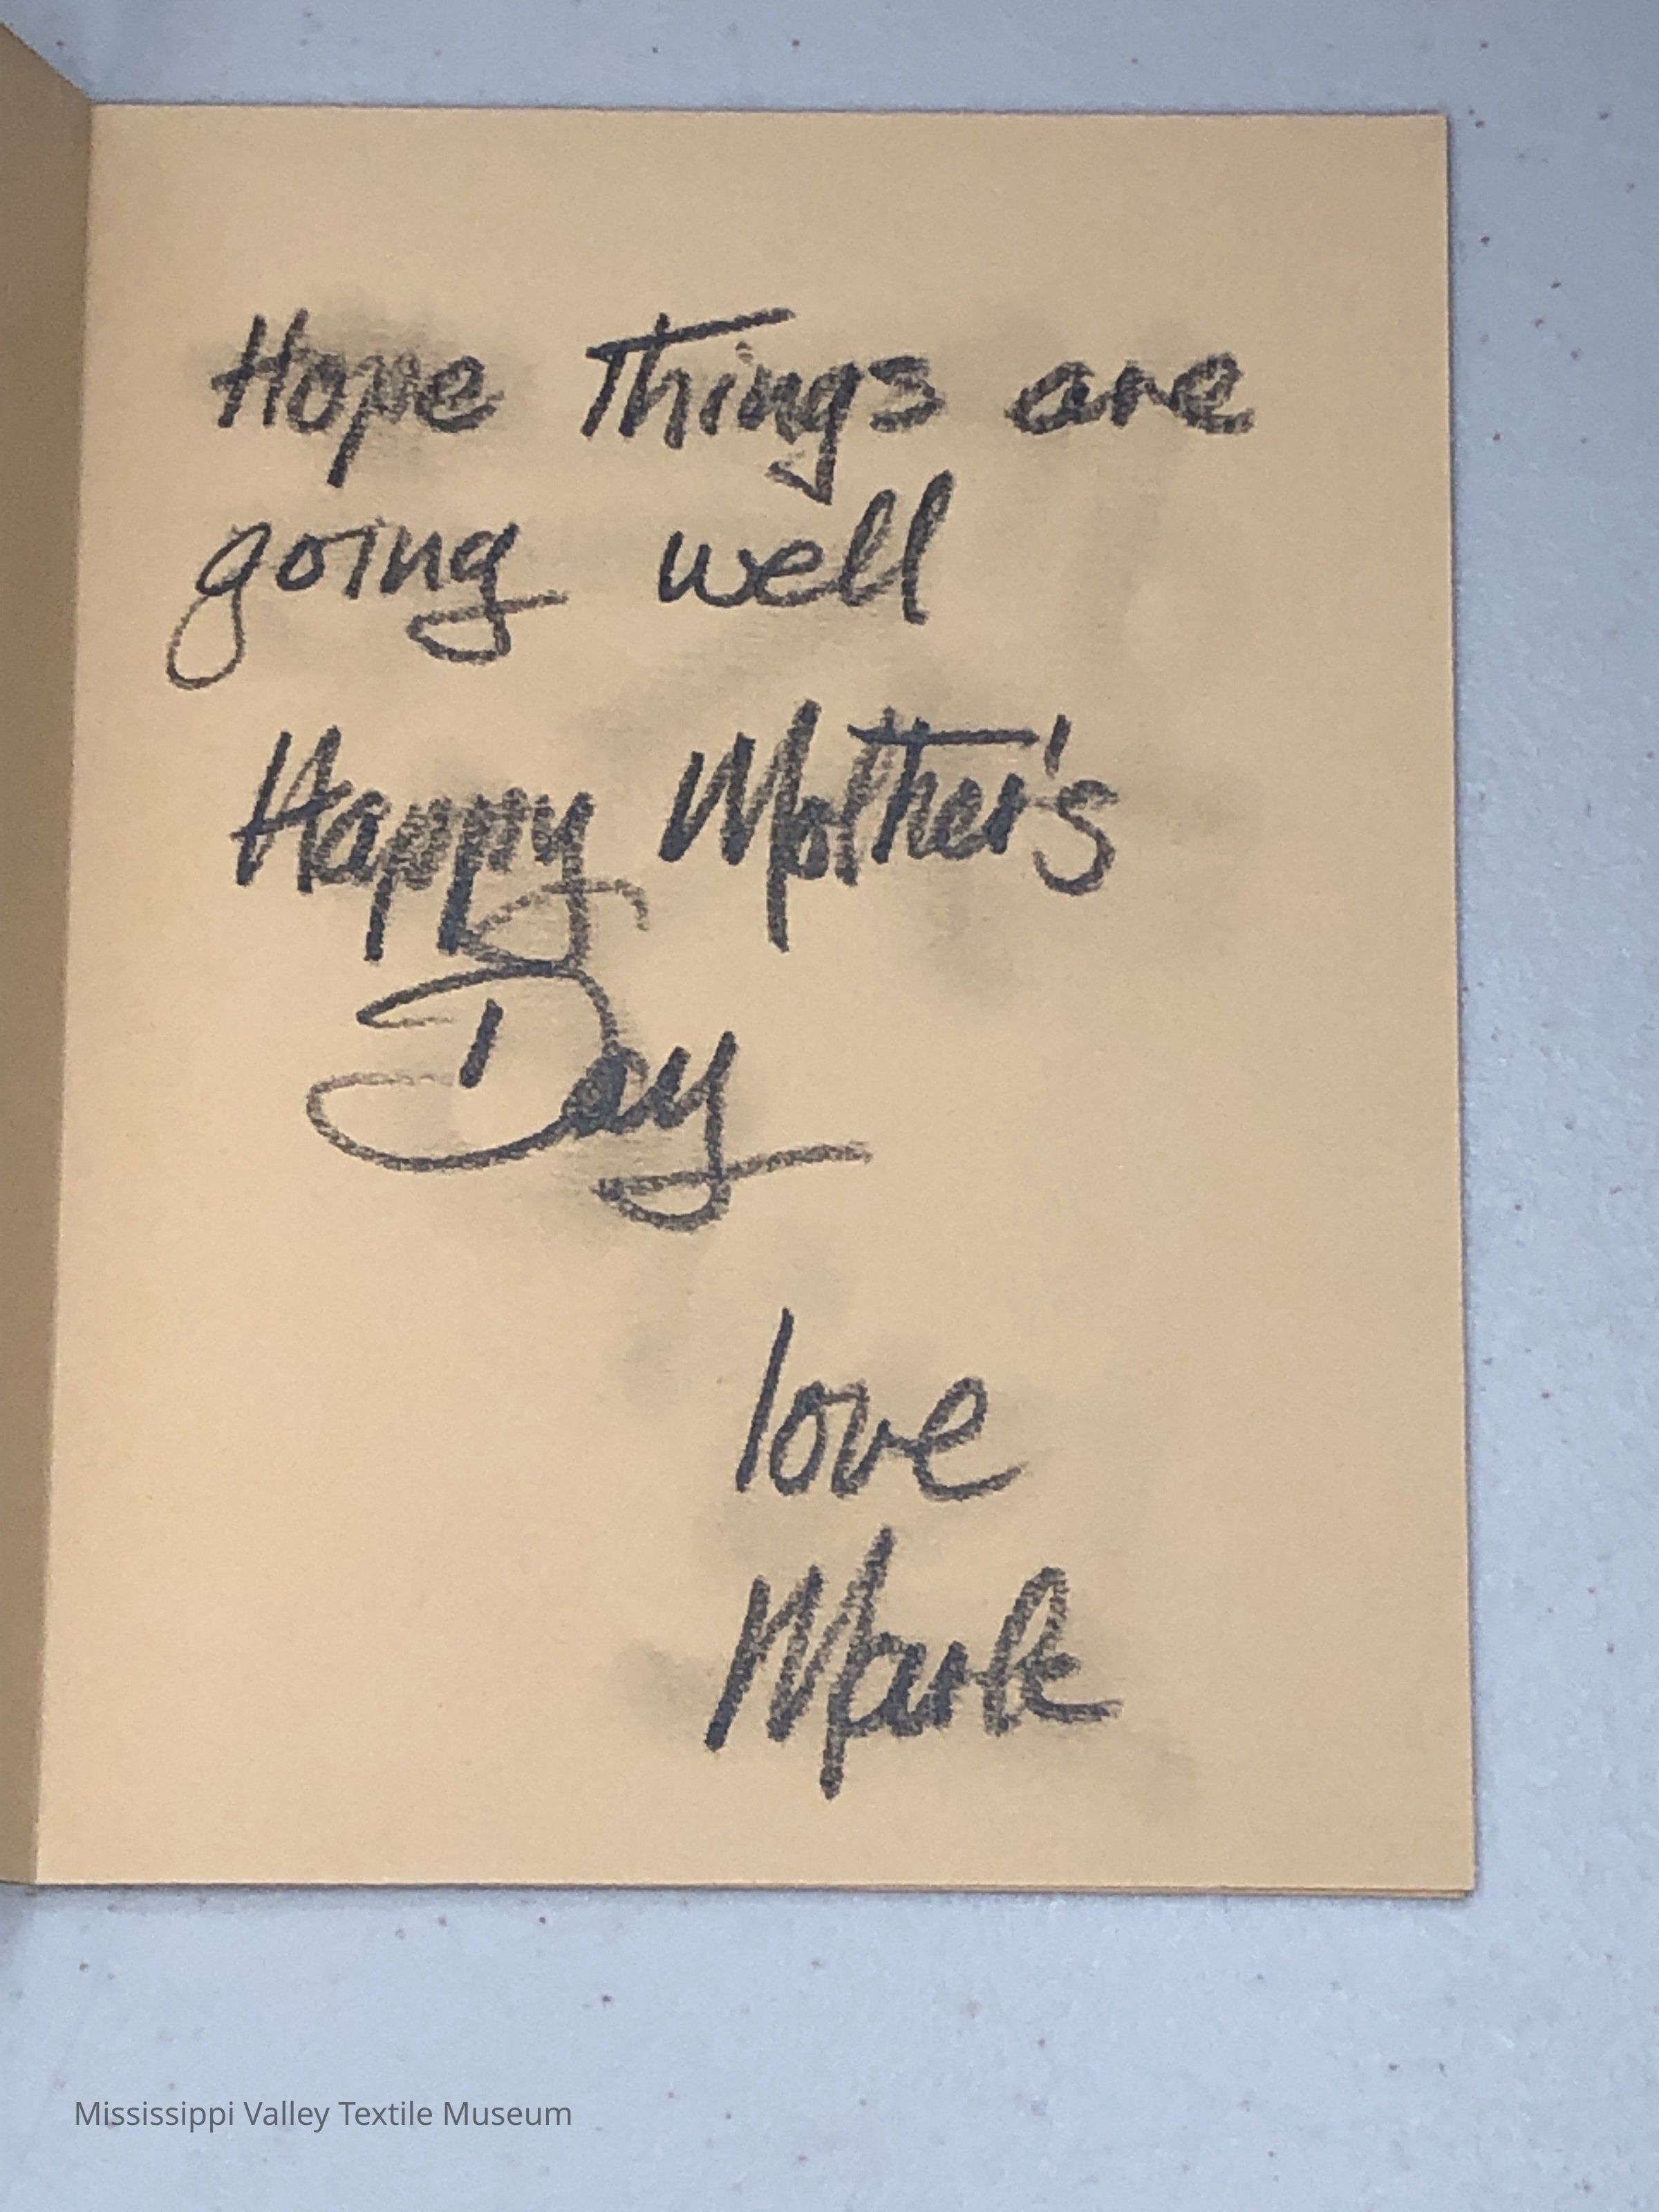 Hope Things are
going well
Happy Mother's
Day
love
Mark
Mississippi Valley Textile Museum